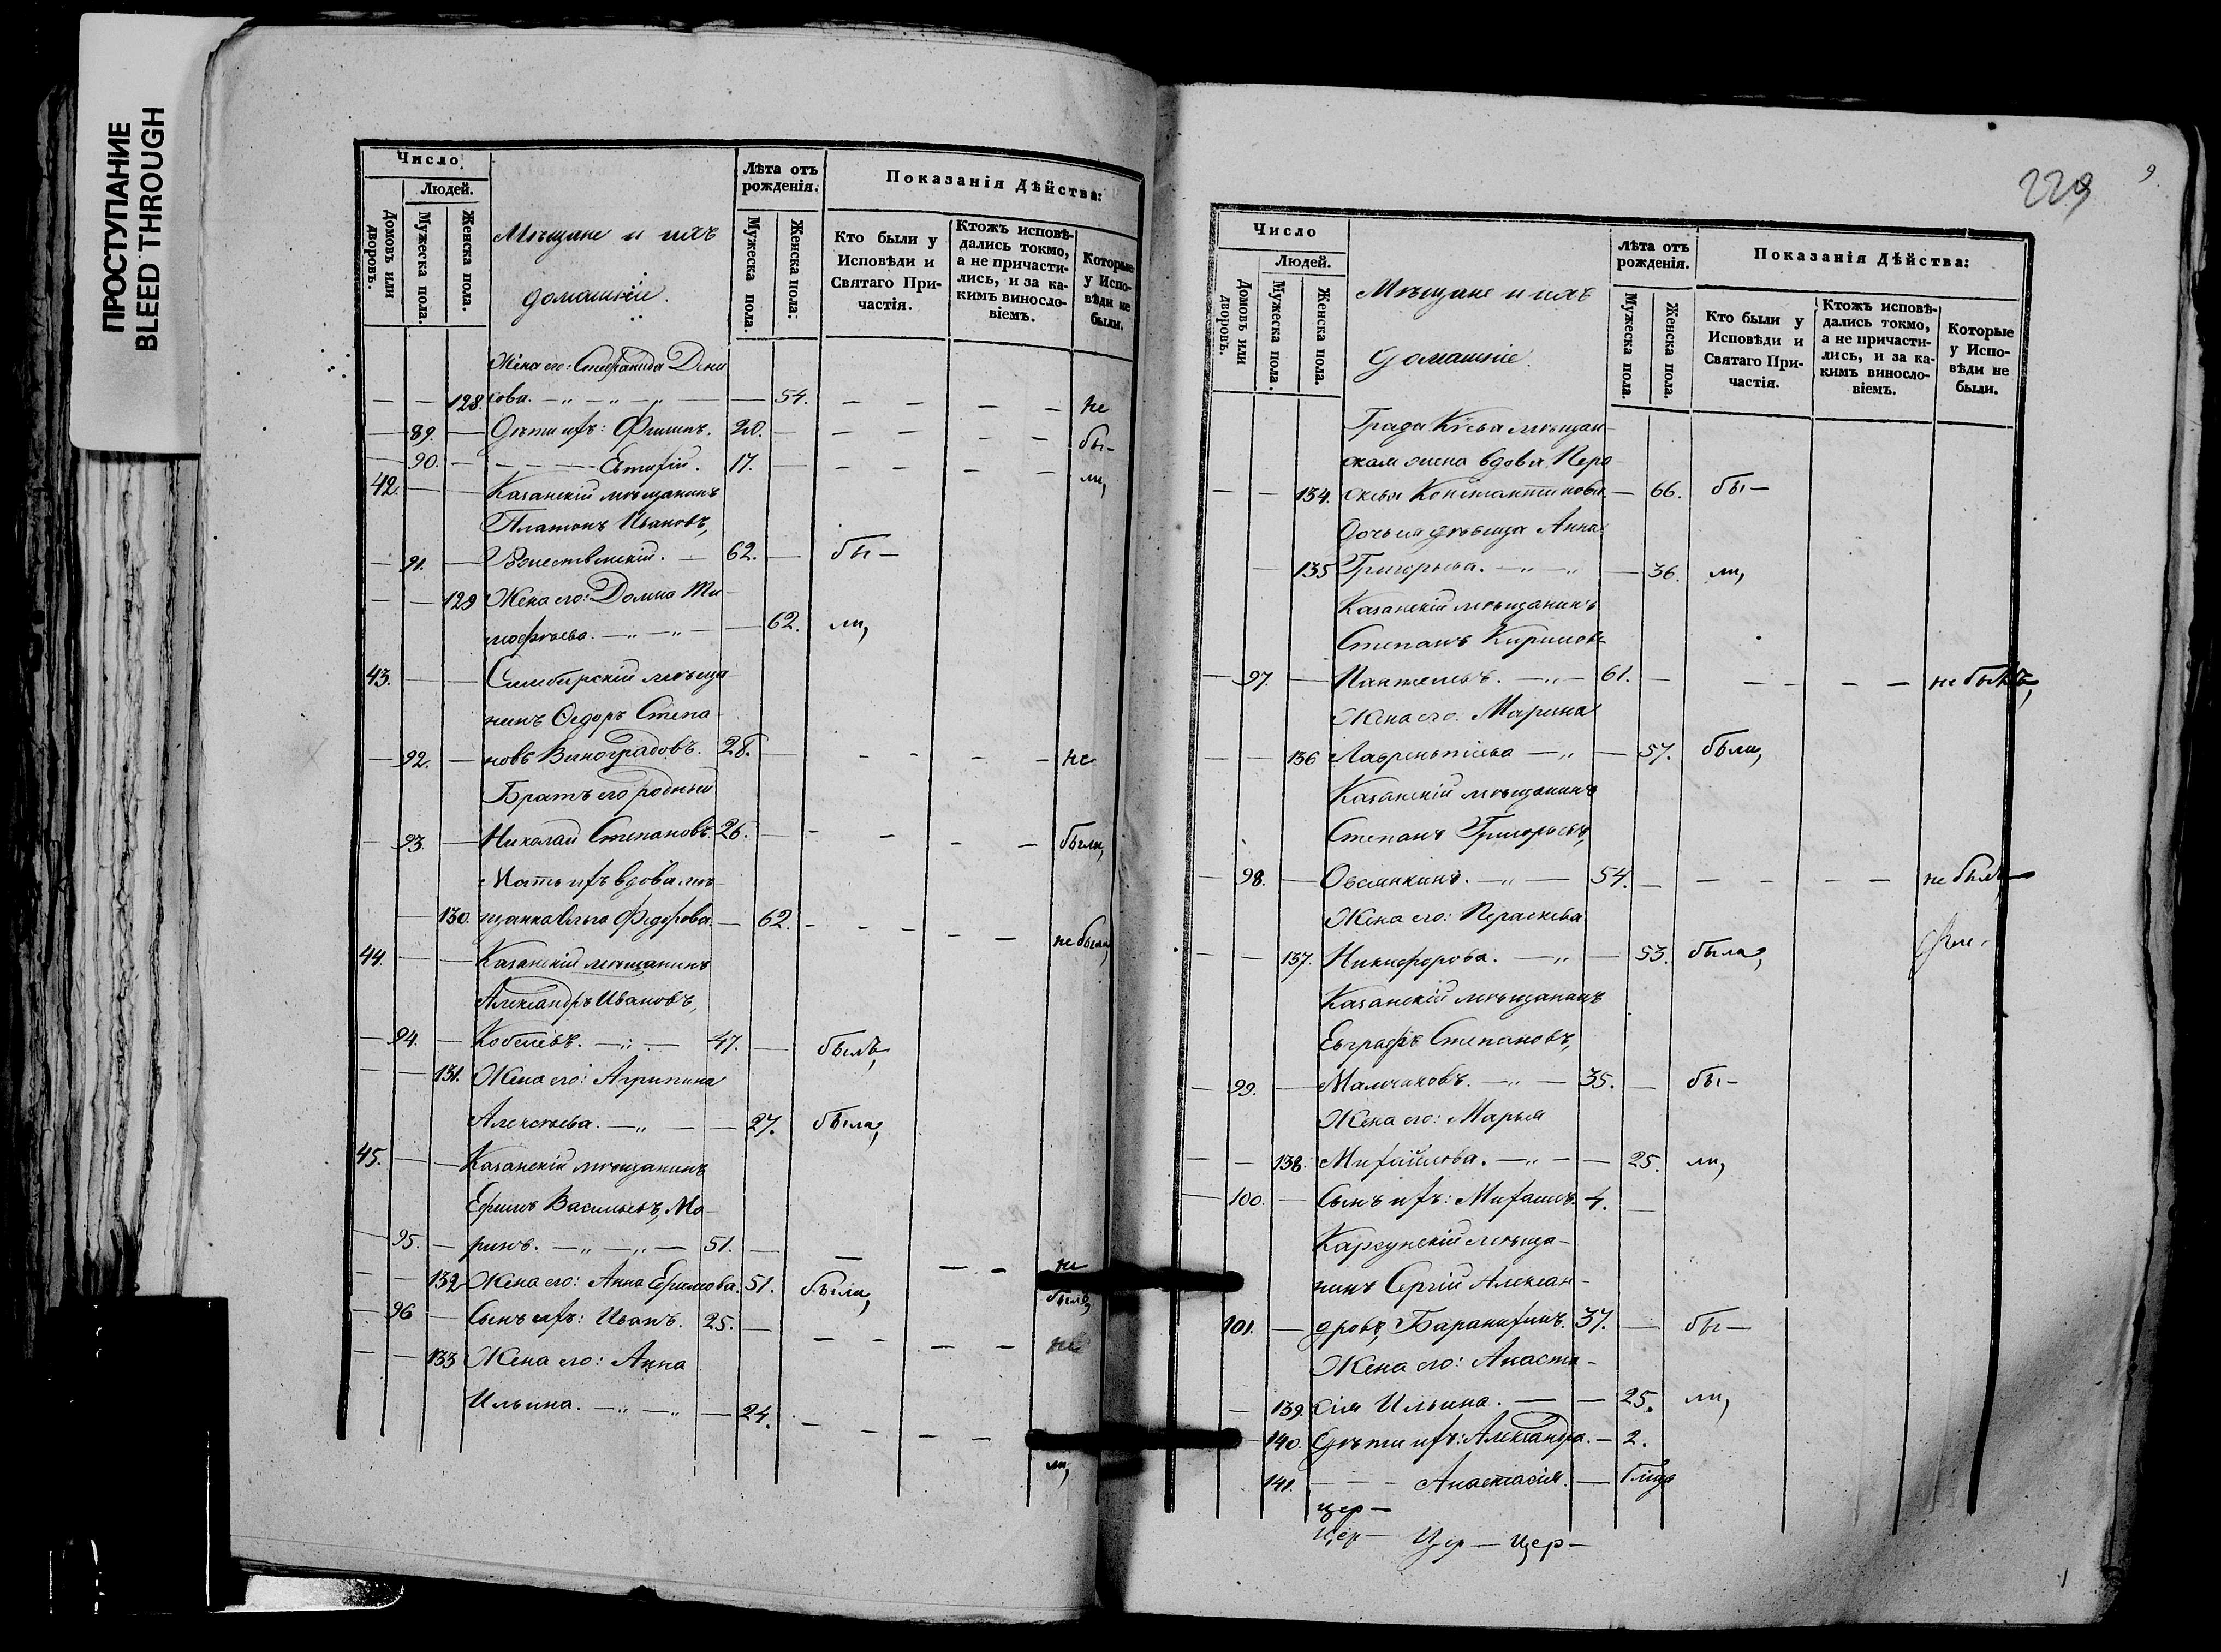 ПРОСТУПАНИЕ
BLEED THROUGH
Число
Людей.
Домовъ или дворовъ.
Мужеска пола.
Женска пола.
Мѣщане и ихъ
домашніе.
Лѣта отъ рожденія.
Мужеска пола.
Женска пола.
Показанія Дѣйства:
Кто были у Исповѣди и Святаго Причастія.
Ктожъ исповѣдались токмо, а не причастились, и за какимъ винословіемъ.
Которые у Исповѣди не были.
Жена его: Стефанида Дени
128. сова. — „ — „ — „ — — 54. — — — — не
— 89. — Дѣти ихъ: Филипъ. 20. — — — — — бы-
— 90. — — — — 17. — — — — — ли,
42. — — Казанскій мѣщанинъ
Платонъ Ивановъ,
— 91. — 62. — бы —
— — 129 Жена его: Домна Ти-
мофѣева. — „ — „ — — 62. ли,
43. — — Симбирскій мѣща
нинъ Ѳедоръ Степа-
— 92. — новъ Виноградовъ. 28. — — — — — не
Братъ его родный
— 93. — Николай Степановъ. 26. — — — — — были,
Мать ихъ вдова мѣ-
— 130. щанка Ольга Федорова. — 62. — — — — — не была,
44. — — Казанскій мѣщанинъ
Александръ Ивановъ,
— 94. — Кобелевъ. — „ — 47. — былъ,
— — 131. Жена его: Агрипина
Алексѣева. — „ — — 27. была,
45. — — Казанскій мѣщанинъ
Ефимъ Васильевъ, Мо-
— 95. — ринъ. — „ — „ — 51. — — — — не
— — 132 Жена его: Анна Ефимова. 51. были, былъ,
— 96 — Сынъ ихъ: Иванъ. 25. — — — — — не
— — 133 Жена его: Анна
Ильина. — „ — „ — 24. — — — — ли,
229
9.
Число
Людей.
Домовъ или дворовъ.
Мужеска пола.
Женска пола.
Мѣщане и ихъ
домашніе.
Лѣта отъ рожденія.
Мужеска пола.
Женска пола.
Показанія Дѣйства:
Кто были у Исповѣди и Святаго Причастія.
Ктожъ исповѣдались токмо, а не причастились, и за какимъ винословіемъ.
Которые у Исповѣди не были.
Града Кіева мѣщан-
ская жена вдова Пера-
— — 134. скевья Константинова — 66. бы —
Дочь ея дѣвица Анна
— 135 Григорьева. — „ — „ — 36. ли,
Казанскій мѣщанинъ
Степанъ Кириловъ
— 97. — Пантелѣевъ. — „ — 61. — — — — — не былъ,
Жена его: Марина
— — 136 Лаврентіева — „ — 57. была,
Казанскій мѣщанинъ
Степанъ Григорьевъ,
— 98. — Овсянкинъ. — „ — 54. — — — — — не былъ
Жена его: Пераскева
— — 137. Никифорова. — „ — 53. была,
Казанскій мѣщанинъ
Евграфъ Степановъ,
— 99. — Малчановъ. — „ — 35. — бы —
Жена его: Марья
— — 138. Михайлова. — „ — — 25. ли,
— 100. — Сынъ ихъ: Михаилъ. 4. —
Карсунскій мѣща-
нинъ Сергій Алексан-
101. — дровъ, Баранихинъ. 37. — бы —
Жена его: Анаста-
— 139. сія Ильина. — — 25. ли,
140. Дѣти ихъ: Александра. — 2.
141. — — Анастасія. —
Цер —
Цер — Цер — Цер —